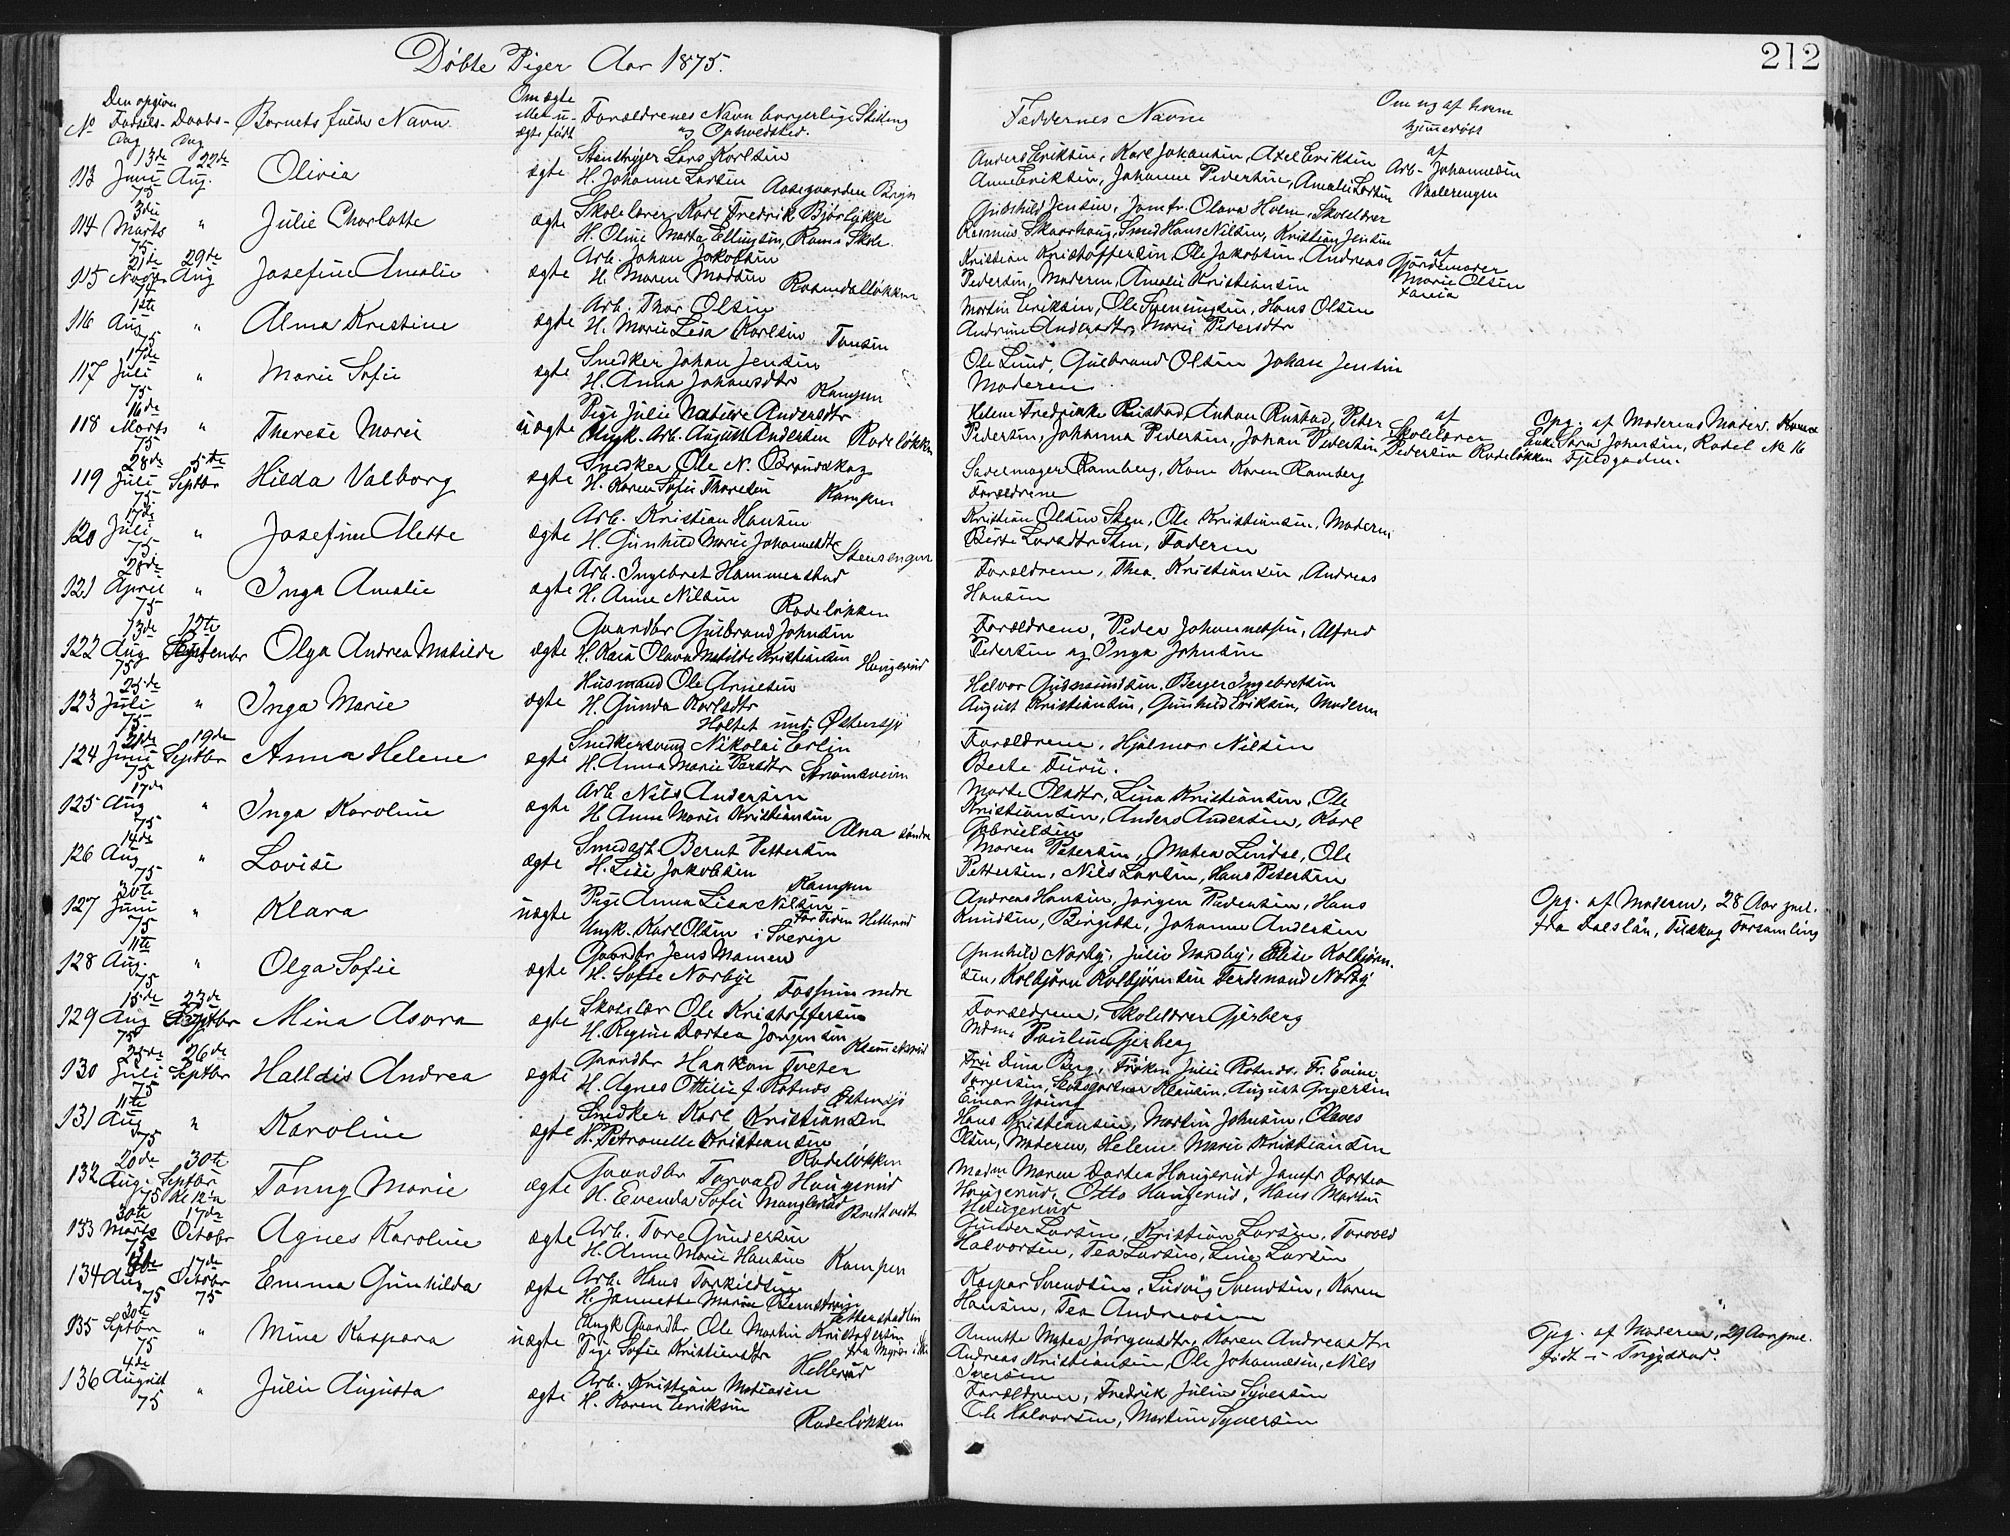 Døbte Piger Aar 1875.
212
No
Den opgivne Fødsels-Dag
Daabs-Dag
Barnets fulde Navn
Om ægte eller uægte født
Forældrenes Navn borgerlige Stilling og Opholdssted.
Faddernes Navne
Om og af hvem hjemmedøbt
113 13de Juni 75 22de Aug. Olivia ægte
Lars Karlsen
H. Johanne Larsen Aasegaarden Bryn
Anders Eriksen, Karl Johansen, Axel Eriksen
Anne Eriksen, Johanne Pedersen, Amalie Larsen
af Arb. Johannesen Vaalerengen
114 3die Marts 75 " Julie Charlotte ægte
Skolelærer Karl Fredrik Bjørlykke
H. Oline Marta Ellingsen, Skole
Gudshild Jensen, Jomfr. Olava Holm, Skolelærer
Rasmus Skaarhaug, Smed Hans Nilsen, Kristian Jensen
115 21de Novbr 74 29de Aug Josefine Amalie ægte
Arb. Johan Jakobsen
H. Maren Madsen Rosendalløkken
Kristian Kristoffersen, Ole Jakobsen, Andreas
Pedersen, Moderen, Amalie Kristiansen
af Gjordemoder Marie Olsen
116 1ste Aug 75 " Alma Kristine ægte
Arb. Thor Olsen
H. Marie Lisa Karlsen Tonsen
Martin Eriksen, Ole Svenningsen, Hans Olsen
Andrine Andersdtr, Marie Pedersdtr
117 17de Juli 75 " Marie Sofie ægte
Snedker Johan Jensen
H. Anna Johansdtr Kampen
Ole Lund, Gulbrand Olsen Johan Jensen
Moderen
118 16de Marts 75 " Therese Marie uægte
Pige Julie Natalie Andersdtr
Ungk. Arb. August Andersen Rodeløkken
Helene Fredrikke Ruistad, Anton Ruistad, Peter
Pedersen, Johanna Pedersen, Johan Pedersen
af Skolelærer Pedersen Rodeløkken
Opg. af Moderens Moder, Kone
Sara Johnsen, Rodel. No 16
Fjeldgaden.
119 28de Juli 75 5te Septbr Hilda Valborg ægte
Snedker Ole N. Brandskog
H. Karen Sofie Thoresen Kampen
Sadelmager Ramberg, Kone Karen Ramberg
Forældrene
120 17de Juli 75 " Josefine Mette ægte
Arb. Kristian Hansen
H. Gunhild Marie Johannesdtr Stensengen
Kristian Olsen Sten, Ole Kristiansen, Moderen
Berte Larsdtr Sten, Faderen
121 28de April 75 " Inga Amalie ægte
Arb. Ingebret Hammerstad
H. Anne Nilsen Rodeløkken
Forældrene, Thea Kristiansen, Andreas
Hansen
122 13de Aug 75 12te September Olga Andrea Matilde ægte
Gaardbr Gulbrand Johnsen
H. Kaia Olava Matilde Kristiansen Haugerud
Forældrene, Peder Johannessen, Alfred
Pedersen og Inga Johnsen
123 25de Juli 75 " Inga Marie ægte
Husmand Ole Arnesen
H. Gunda Karlsdtr
Holtet und. Østensjø
Halvor Gudmundsen, Berger Ingebretsen
August Kristiansen, Gunhild Eriksen, Moderen
124 21de Juni 75 19de Septbr Anna Helene ægte
Snedkersvend Nikolai Erlin
H. Anna Marie Larsdtr Strømsveien
Forældrene, Hjalmar Nilsen
Berte Furu.
125 17de Aug 75 " Inga Karoline ægte
Arb. Nils Andersen
H. Anne Marie Kristiansen
Alna søndre
Marte Olsdtr, Lina Kristiansen, Ole
Kristiansen, Anders Andersen, Karl
Gabrielsen
126 14de Aug 75 " Lovise ægte
Smedarb. Bernt Pettersen
H. Lise Jakobsen
Kampen
Maren Petersen, Matea Lindse, Ole
Pettersen, Nils Larsen, Hans Petersen
127 30te Juni 75 " Klara uægte
Pige Anna Lisa Nilsen
Ungk. Karl Olsen i Sverige
Andreas Hansen, Jørgen Pedersen, Hans
Knudsen, Birgitte, Johanne Andersen
Opg. af Moderen, 28 Aar gml.
fra Dalslän, Tisskog Forsamling
128 11te Aug. 75 " Olga Sofie ægte
Gaardbr Jens Mamen
H. Sofie Norbye
Fossum nedre
Gunhild Norby, Julie Nordby, Elise Kolbjørn-
sen, Kolbjørn Kolbjørnsen Ferdinand Norby
129 15de Aug 75 23de Septbr Mina Asora ægte
Skolelær Ole Kristoffersen
H. Regine Dortea Jørgensen Klemetsrud
Forældrene, Skolelærer Gjerberg
Mdm. Pauline Gjerberg
130 25de Juli 75 26de Septbr Halldis Andrea ægte
Gaardbr Haakon Tveter
H. Agnes Ottilie f. Rolsnds Østensjø
Fru Dina Berg, Frøken Julie, Fr. Evine
Torgersen, Klausen, August Gregersen
Einar Young
131 11te Aug 75 " Karoline ægte
Snedker Karl Kristiansen
H. Petronelle Kristiansen
Rodeløkken
Hans Kristiansen, Martin Johnsen, Olaves
Olsen, Moderen, Helene Marie Kristiansen
132 20de Aug. 75 30te Septbr Kl 12 Fanny Marie ægte
Gaardbr Torvald Haugerud
H. Evenda Sofie Manglerud Bredtvedt
Madm. Maren Dortea Haugerud Jomfr Dortea
Haugerud, Otto Haugerud, Hans Martin
Haugerud
133 30te Marts 75 17de Octobr Agnes Karoline ægte
Arb. Tore Gundersen
H. Anne Marie Hansen Kampen
Gunder Larsen, Kristian Larsen, Torvald
Halvorsen, Tea Larsen, Lina Larsen
134 Aug 75 17de Octobr 75 Emma Gunhilda ægte
Arb. Hans Torkildsen
H. Jannette Marie Berntsen
Kaspar Svendsen, Ludvig Svendsen, Karen
Hansen, Tea Andreasen
135 30te Septbr 75 " Mina Kaspara uægte
Ungk Gaardbr Ole Martin Kristoffersen
Pige Sofie Kristiansdtr
Hellerud
Annette Matea Jørgensdtr, Karen Andreasdtr
Andreas Kristiansen, Ole Johannesen, Nils
Iversen
Opg. af Moderen, 29 Aar gml.
født i Trøgstad.
136 4de August 75 " Julie Augusta ægte
Arb. Kristian Matiasen
H. Karen Eriksen
Rodeløkken
Forældrene, Fredrik Julius Syversen
Ole Halvorsen, Martine Syversen